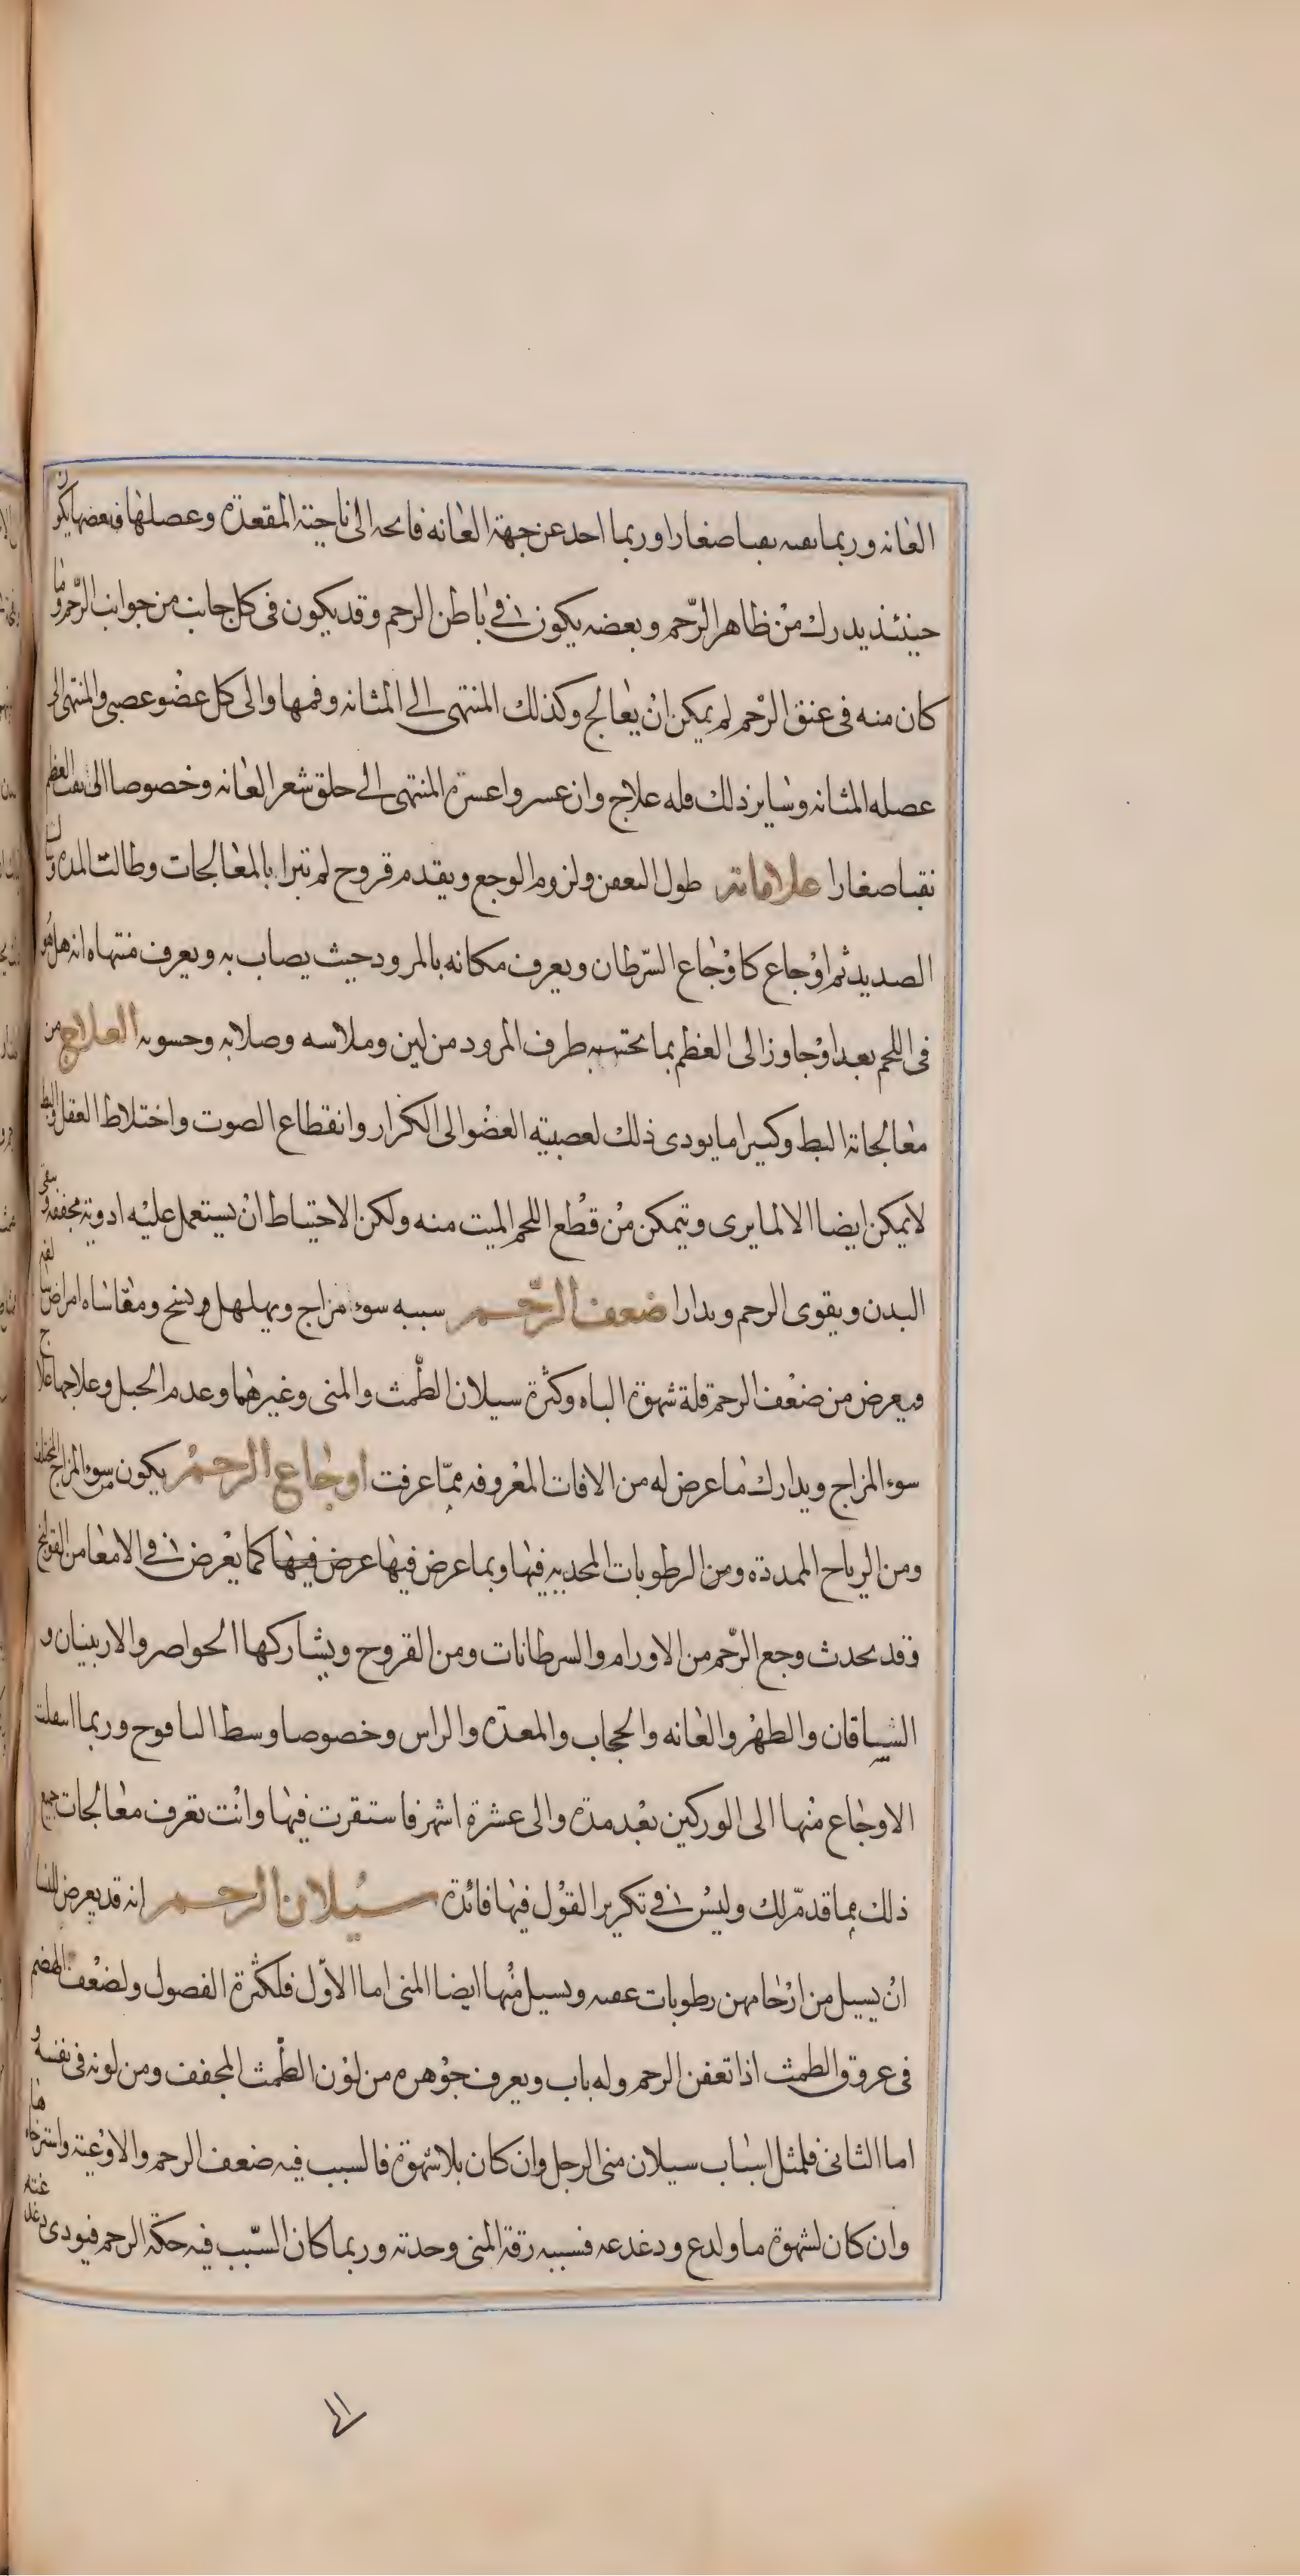 العانه وربما نقبه نقبا صغارا وربما اخذ عن جهة العانه فاتجه الى ناحية المقعدة وعضلها فبعضها يكون
حينئذ يدرك من ظاهر الرحم وبعضه يكون فى باطن الرحم وقد يكون فى كل جانب من جوانب الرحم وما
كان منه فى عنق الرحم لم يمكن ان يعالج وكذلك المنتهى الى المثانه وفمها والى كل عضو عصبى والمنتهى الى
عضله المثانه وساير ذلك فله علاج وان عسر واعسره المنتهى الى حلق شعر العانه وخصوصا الى نقب العظم
نقبا صغارا علاماته طول التعفن ولزوم الوجع ويقدم قروح لم تبرا بالمعالجات وطالت المده وسال
الصديد ثم اوجاع كاوجاع السرطان ويعرف مكانه بالمرود حيث يصاب به ويعرف منتهاه انه هل هو
فى اللحم بعد او جاوز الى العظم بما يحتبس به طرف المرود من لين وملاسه وصلابه وخشونه العلاج من
معالجاته البط وكثيرا ما يودى ذلك لعصبية العضو الى الكزاز وانقطاع الصوت واختلاط العقل والبط
لا يمكن ايضا الا لما يرى ويتمكن من قطع اللحم الميت منه ولكن الاحتياط ان يستعمل عليه ادوية مجففه وينقى
البدن ويقوى الرحم ويدارا ضعف الرحم سببه سوء مزاج ويهلهل ونسج ومقاساه امراض سالفه
ويعرض من ضعف الرحم قلة شهوة الباه وكثرة سيلان الطمث والمنى وغيرهما وعدم الحبل وعلاجها علاج
سوء المزاج ويدارك ما عرض له من الافات المعروفه مما عرفت اوجاع الرحم يكون من سوء المزاج المختلف
ومن الرياح الممددة ومن الرطوبات المحدبه فيها وبما عرض فيها عرض فيها كما يعرض فى الامعا من القولنج
وقد يحدث وجع الرحم من الاورام والسرطانات ومن القروح ويشاركها الخواصر والاربيتان و
الساقان والظهر والعانه والحجاب والمعدة والراس وخصوصا وسط اليافوخ وربما انتقلت
الاوجاع منها الى الوركين بعد مدة والى عشرة اشهر فاستقرت فيها وانت تعرف معالجات جميع
ذلك بما قدم لك وليس فى تكرير القول فيها فائدة سيلان الرحم انه قد يعرض للنسا
ان يسيل من ارحامهن رطوبات عفنه ويسيل منها ايضا المنى اما الاول فلكثرة الفضول ولضعف الهضم
فى عروق الطمث اذا تعفن الرحم وله باب ويعرف جوهره من لون الطمث المجفف ومن لونه فى نفسه و
اما الثانى فلمثل اسباب سيلان منى الرجل وان كان بلا شهوة فالسبب فيه ضعف الرحم والاوعية واسترخاءها
وان كان لشهوة ما ولذع ودغدغه فسببه رقة المنى وحدته وربما كان السبب فيه حكة الرحم فيودى دغدغته